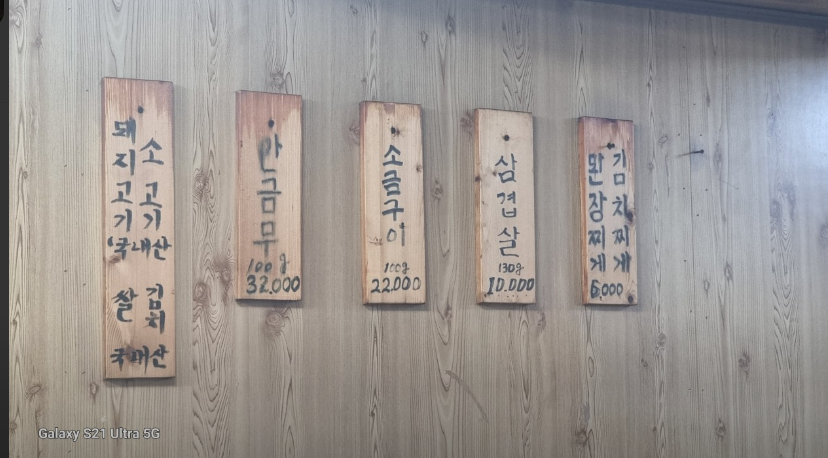 소고기
돼지고기
국내산
김치
쌀
국내산
안금무
100g
32.000
소금구이
100g
22.000
삼겹살
130g
10.000
김치찌게
된장찌게
6.000
Galaxy S21 Ultra 5G